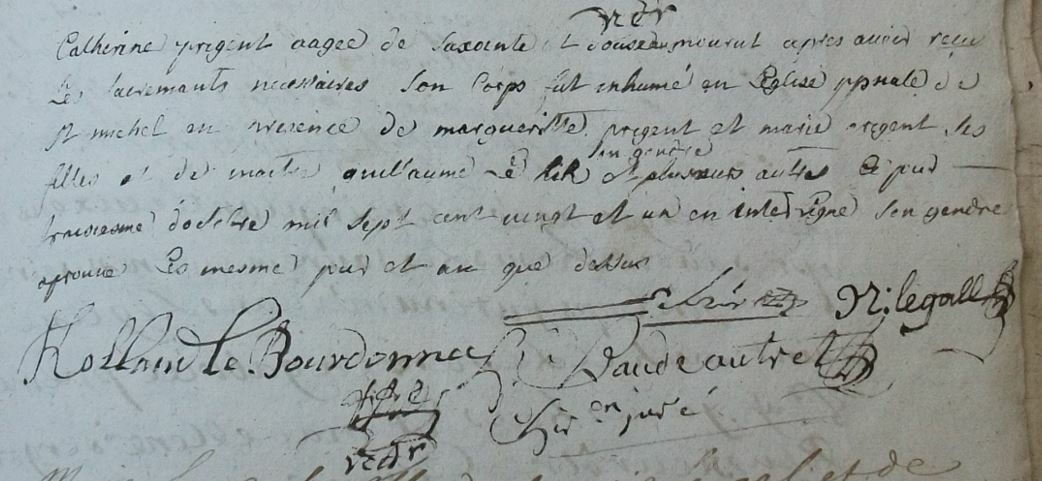 Catherine prigent aagee de saxante et douse ans mourut apres auoir receu
Les sacremants necessaires Son Corps fut inhumé en Leglise ppnale de
St michel en presence de margueritte prigent et marie prigent ses
filles et de maitre guillaume Le et plusieurs autres ce jour
son gendre
troiziesme doctobre mil sept cent vingt et un en interligne son gendre
aprouué Les mesmes jour et an que dessus
N: legall
Rolland Le Bourdonnec Baude autret
chir en juré
rectr
et de